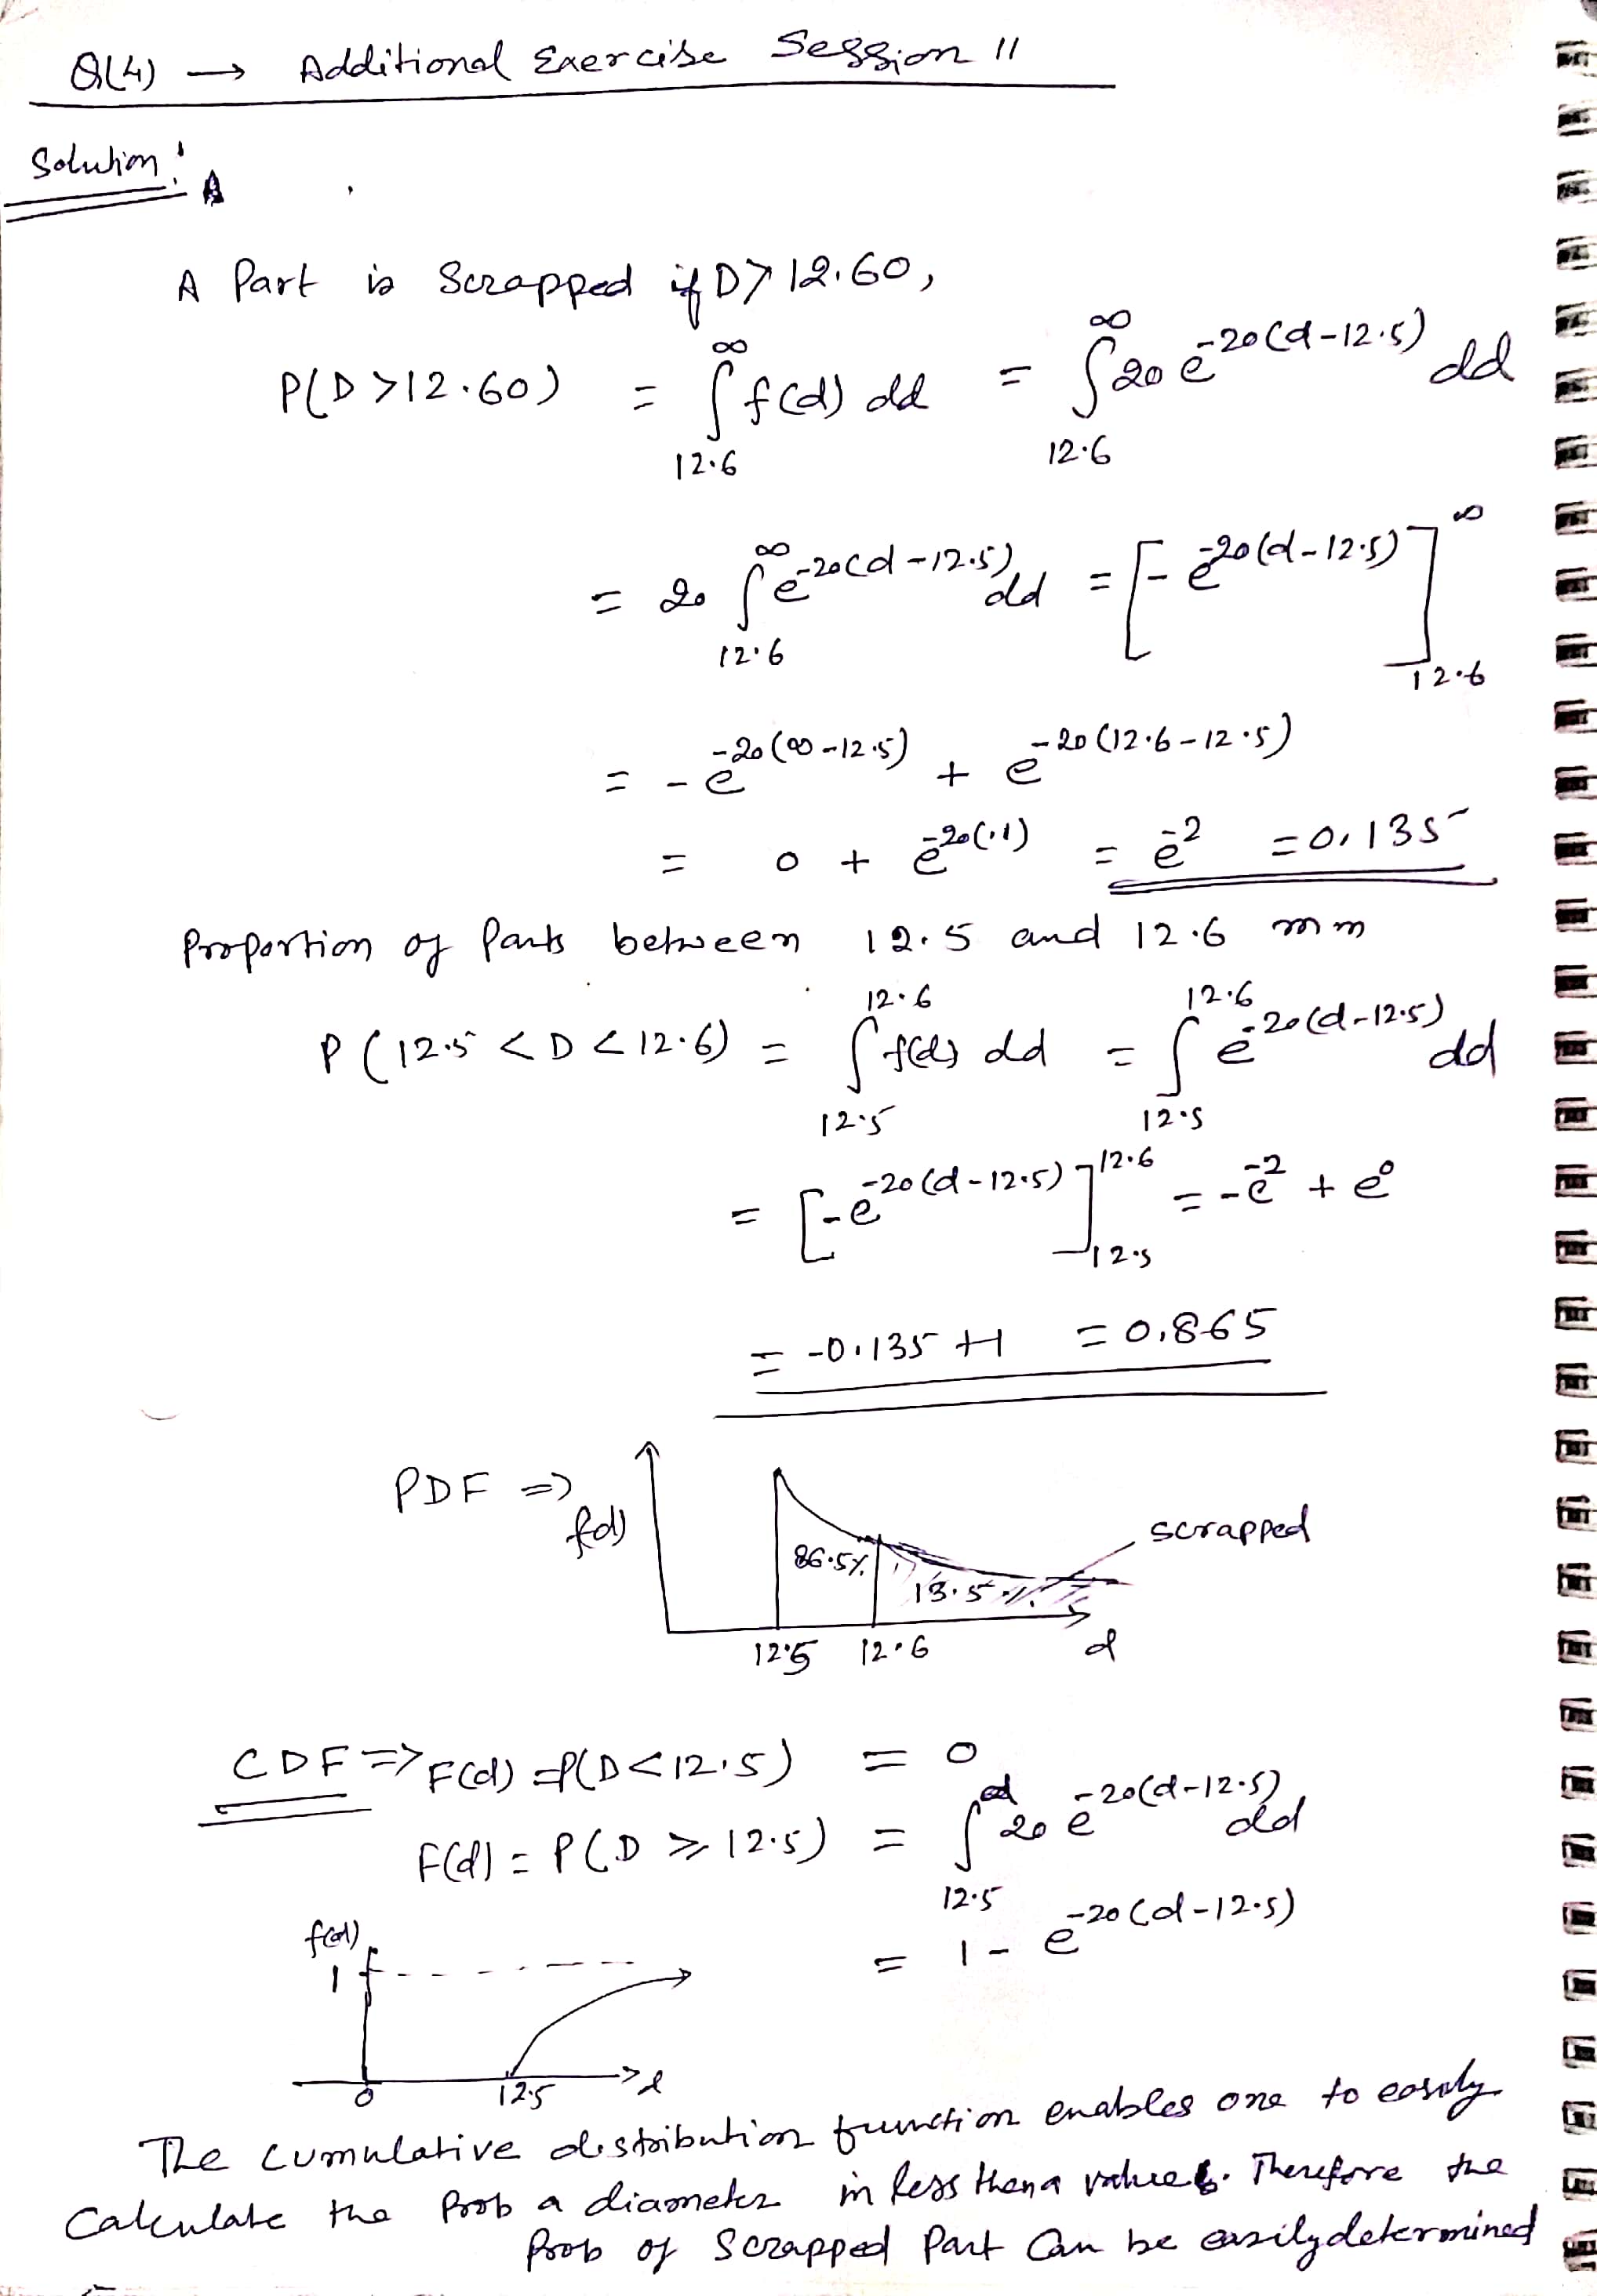 Q(4) → Additional Exercise Session 11
Solution:
A Part is Scrapped if D > 12.60,
P(D > 12.60) = ∫_{12.6}^{∞} f(d) dd = ∫_{12.6}^{∞} 20 e^{-20(d-12.5)} dd
= 20 ∫_{12.6}^{∞} e^{-20(d-12.5)} dd = [- e^{-20(d-12.5)}]_{12.6}^{∞}
= - e^{-20(∞-12.5)} + e^{-20(12.6-12.5)}
= 0 + e^{-20(.1)} = e^{-2} = 0.135
Proportion of Parts between 12.5 and 12.6 mm
P(12.5 < D < 12.6) = ∫_{12.5}^{12.6} f(d) dd = ∫_{12.5}^{12.6} e^{-20(d-12.5)} dd
= [-e^{-20(d-12.5)}]_{12.5}^{12.6} = -e^{-2} + e^{0}
= -0.135 +1 = 0.865
PDF =>
f(d)
scrapped
86.5%
13.5%
12.5 12.6 d
CDF => F(d) = P(D < 12.5) = 0
F(d) = P(D ≥ 12.5) = ∫_{12.5}^{d} 20 e^{-20(d-12.5)} dd
= 1 - e^{-20(d-12.5)}
f(d)
1
0 12.5 d
The cumulative distribution function enables one to easily
Calculate the Prob a diameter in less than a value. Therefore the
Prob of Scrapped Part Can be easily determined